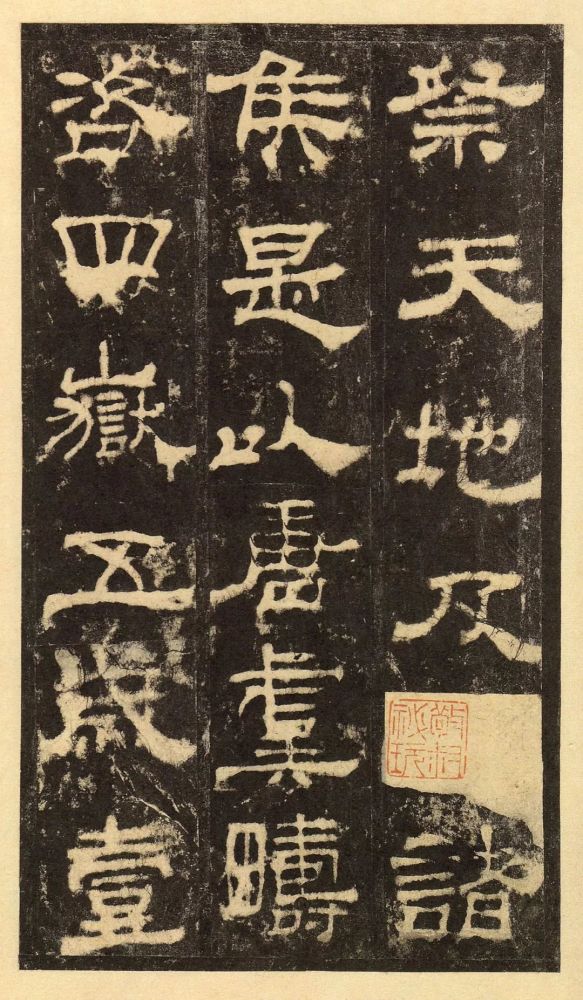 祭天地及諸
矦是以唐虞疇
咨四嶽五歲壹